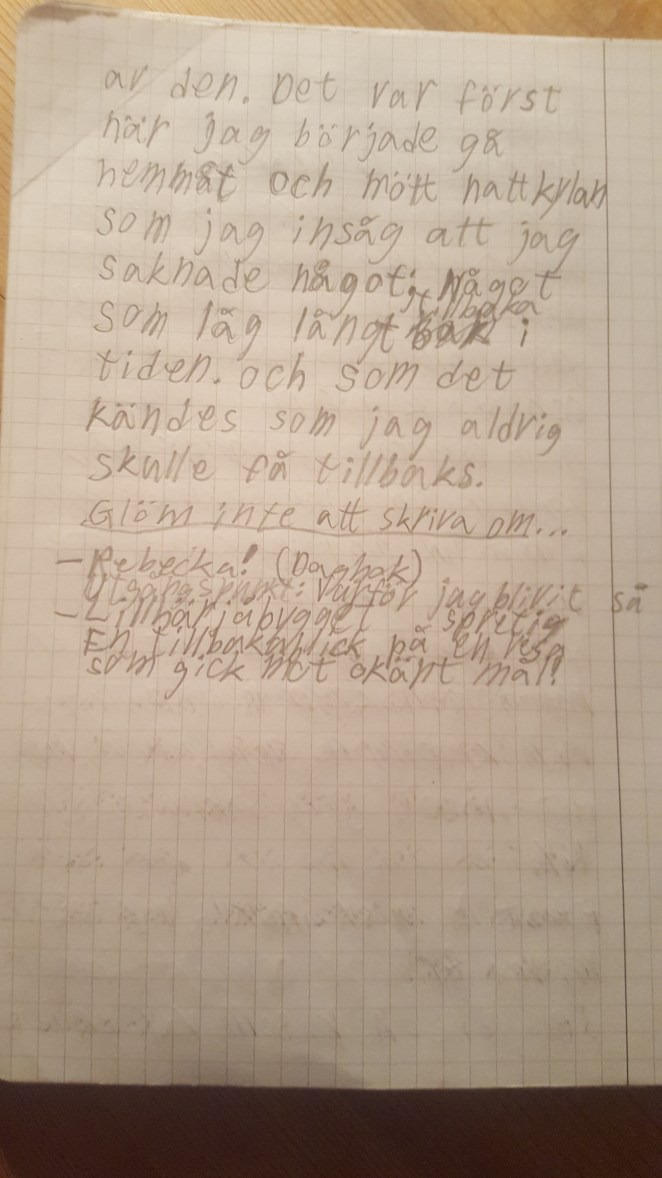 av den. Det var först
när jag började gå
hemmåt och mött nattkylan
som jag insåg att jag
saknade något; Något
som låg långt tillbaka i
tiden. och som det
kändes som jag aldrig
skulle få tillbaks.
Glöm inte att skriva om...
- Rebecka! (Dagbok)
Utgångspunkt: Varför jag blivit så
spretig
- Lillhärjåbygget
En tillbakablick på en resa
som gick mot okänt mål!